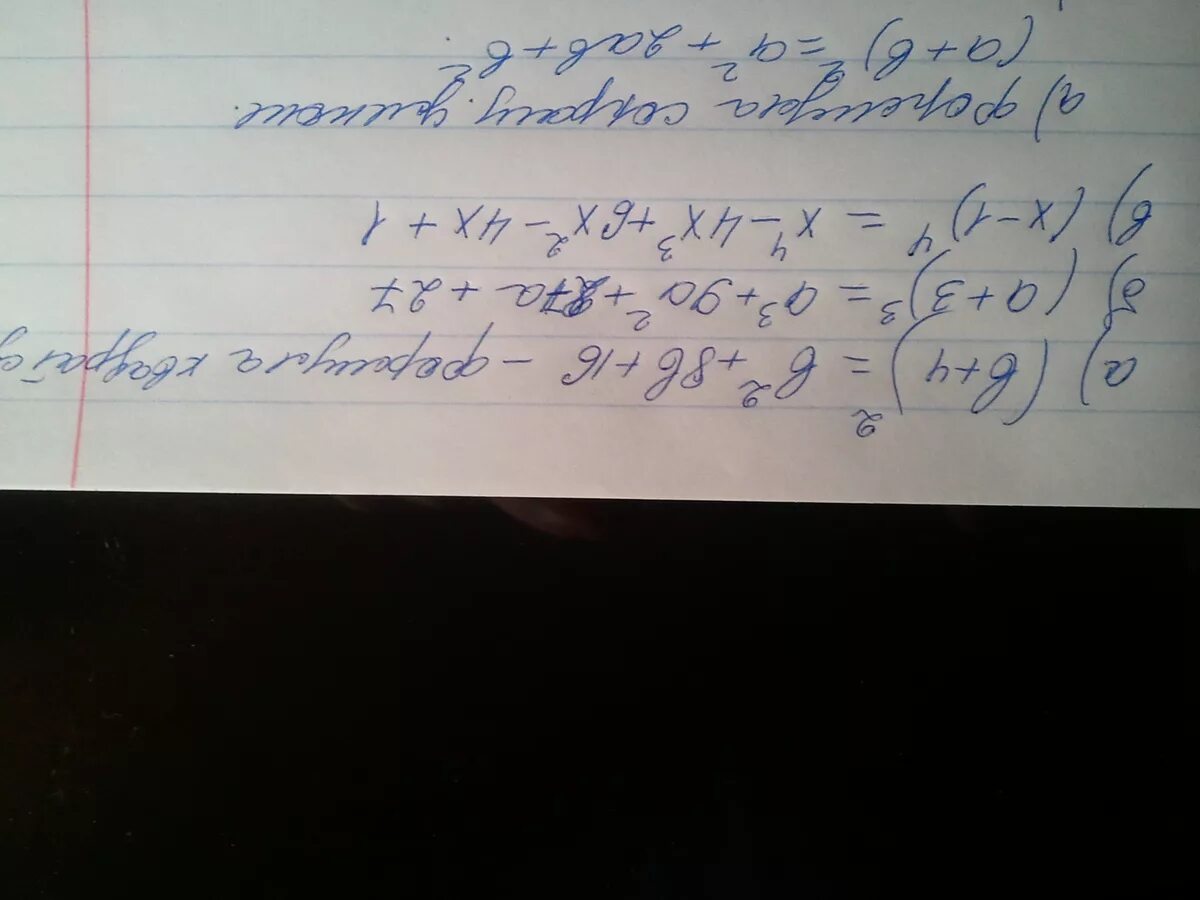 а) (b+4)² = b² + 8b + 16 - формула квадрата
б) (a+3)³ = a³ + 9a² + 27a + 27
в) (x-1)⁴ = x⁴ - 4x³ + 6x² - 4x + 1
а) формула сокращ. умнож.
(a+b)² = a² + 2ab + b².